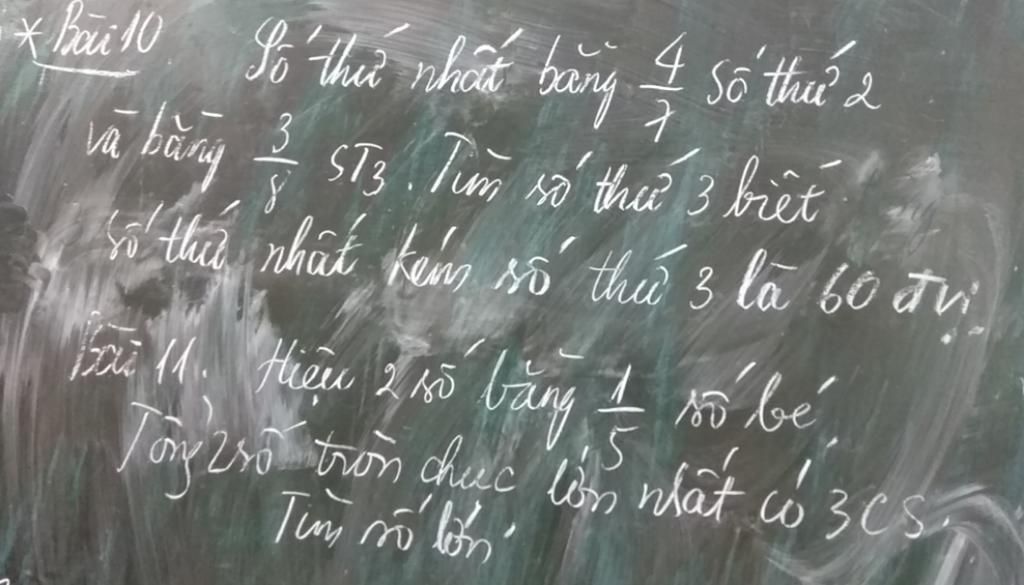 * Bài 10 Số thứ nhất bằng 4/7 số thứ 2
và bằng 3/8 ST3. Tìm số thứ 3 biết
số thứ nhất kém số thứ 3 là 60 đvị.
Bài 11. Hiệu 2 số bằng 1/5 số bé
Tổng 2 số tròn chục lớn nhất có 3 CS.
Tìm số lớn